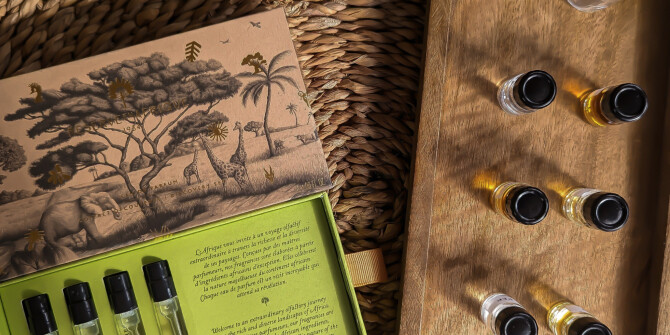 L'Afrique vous invite à un voyage olfactif
extraordinaire à travers la richesse et la diversité
de ses paysages. Conçus par des maîtres
parfumeurs, nos fragrances sont élaborées à partir
d'ingrédients africains d'exception. Elles célèbrent
la nature majestueuse du continent africain.
Chaque eau de parfum est un récit incroyable qui
attend sa révélation.
Welcome to an extraordinary olfactory journey
the rich and diverse landscapes of Africa.
perfumers, our fragrances are
African ingredients,
of the